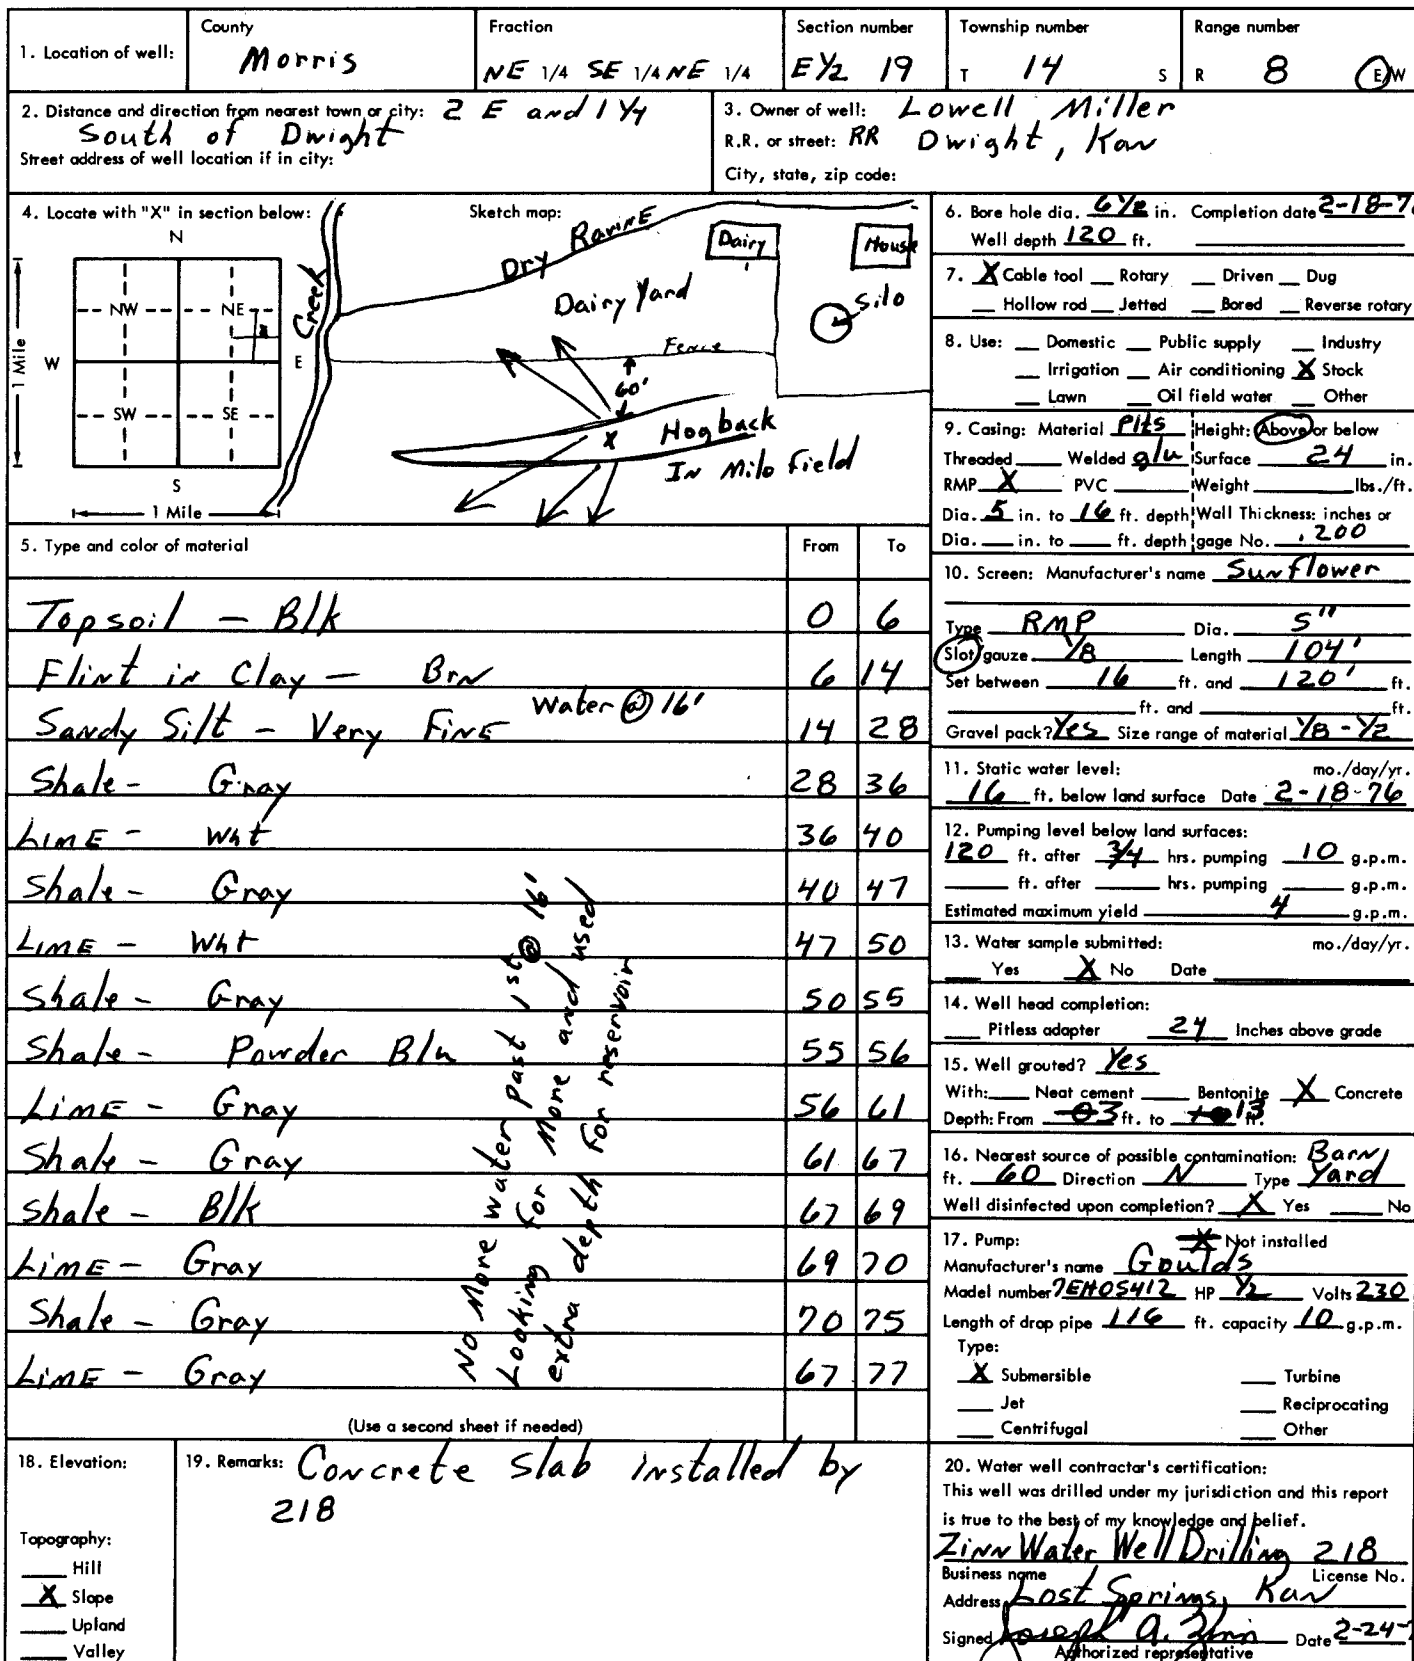 1. Location of well:
County
Morris
Fraction
NE 1/4 SE 1/4 NE 1/4
Section number
E 1/2 19
Township number
T 14 S
Range number
R 8 E/W
2. Distance and direction from nearest town or city: 2 E and 1 1/4
South of Dwight
Street address of well location if in city:
3. Owner of well: Lowell Miller
R.R. or street: RR Dwight, Kan
City, state, zip code:
4. Locate with "X" in section below:
N
NW NE
W E
SW SE
S
1 Mile
1 Mile
Sketch map:
Creek
Dry Ravine
Dairy
House
Dairy Yard
Silo
Fence
60'
X
Hogback
In Milo Field
5. Type and color of material From To
Topsoil - Blk 0 6
Flint in Clay - Brn 6 14
Water @ 16'
Sandy Silt - Very Fine 14 28
Shale - Gray 28 36
Lime - Wht 36 40
Shale - Gray 40 47
Lime - Wht 47 50
Shale - Gray 50 55
Shale - Powder Blu 55 56
Lime - Gray 56 61
Shale - Gray 61 67
Shale - Blk 67 69
Lime - Gray 69 70
Shale - Gray 70 75
Lime - Gray 67 77
No More water past 1st @ 16'
Looking for More and used
extra depth for reservoir
(Use a second sheet if needed)
6. Bore hole dia. 6 1/2 in. Completion date 2-18-7
Well depth 120 ft.
7. X Cable tool Rotary Driven Dug
Hollow rod Jetted Bored Reverse rotary
8. Use: Domestic Public supply Industry
Irrigation Air conditioning X Stock
Lawn Oil field water Other
9. Casing: Material Plts Height: Above or below
Threaded Welded glu Surface 24 in.
RMP X PVC Weight lbs./ft.
Dia. 5 in. to 16 ft. depth Wall Thickness: inches or
Dia. in. to ft. depth gage No. .200
10. Screen: Manufacturer's name Sunflower
Type RMP Dia. 5"
Slot/gauze 1/8 Length 104'
Set between 16 ft. and 120' ft.
ft. and ft.
Gravel pack? Yes Size range of material 1/8 - 1/2
11. Static water level: mo./day/yr.
16 ft. below land surface Date 2-18-76
12. Pumping level below land surfaces:
120 ft. after 3/4 hrs. pumping 10 g.p.m.
ft. after hrs. pumping g.p.m.
Estimated maximum yield 4 g.p.m.
13. Water sample submitted: mo./day/yr.
Yes X No Date
14. Well head completion:
Pitless adapter 24 Inches above grade
15. Well grouted? Yes
With: Neat cement Bentonite X Concrete
Depth: From 3 ft. to 13 ft.
16. Nearest source of possible contamination: Barn
ft. 60 Direction N Type Yard
Well disinfected upon completion? X Yes No
17. Pump: X Not installed
Manufacturer's name Goulds
Model number 7EH05412 HP 1/2 Volts 230
Length of drop pipe 116 ft. capacity 10 g.p.m.
Type:
X Submersible Turbine
Jet Reciprocating
Centrifugal Other
18. Elevation:
Topography:
Hill
X Slope
Upland
Valley
19. Remarks: Concrete Slab installed by
218
20. Water well contractor's certification:
This well was drilled under my jurisdiction and this report
is true to the best of my knowledge and belief.
Zinn Water Well Drilling 218
Business name License No.
Address Lost Springs, Kan
Signed Joseph A. Zinn Date 2-24-7
Authorized representative